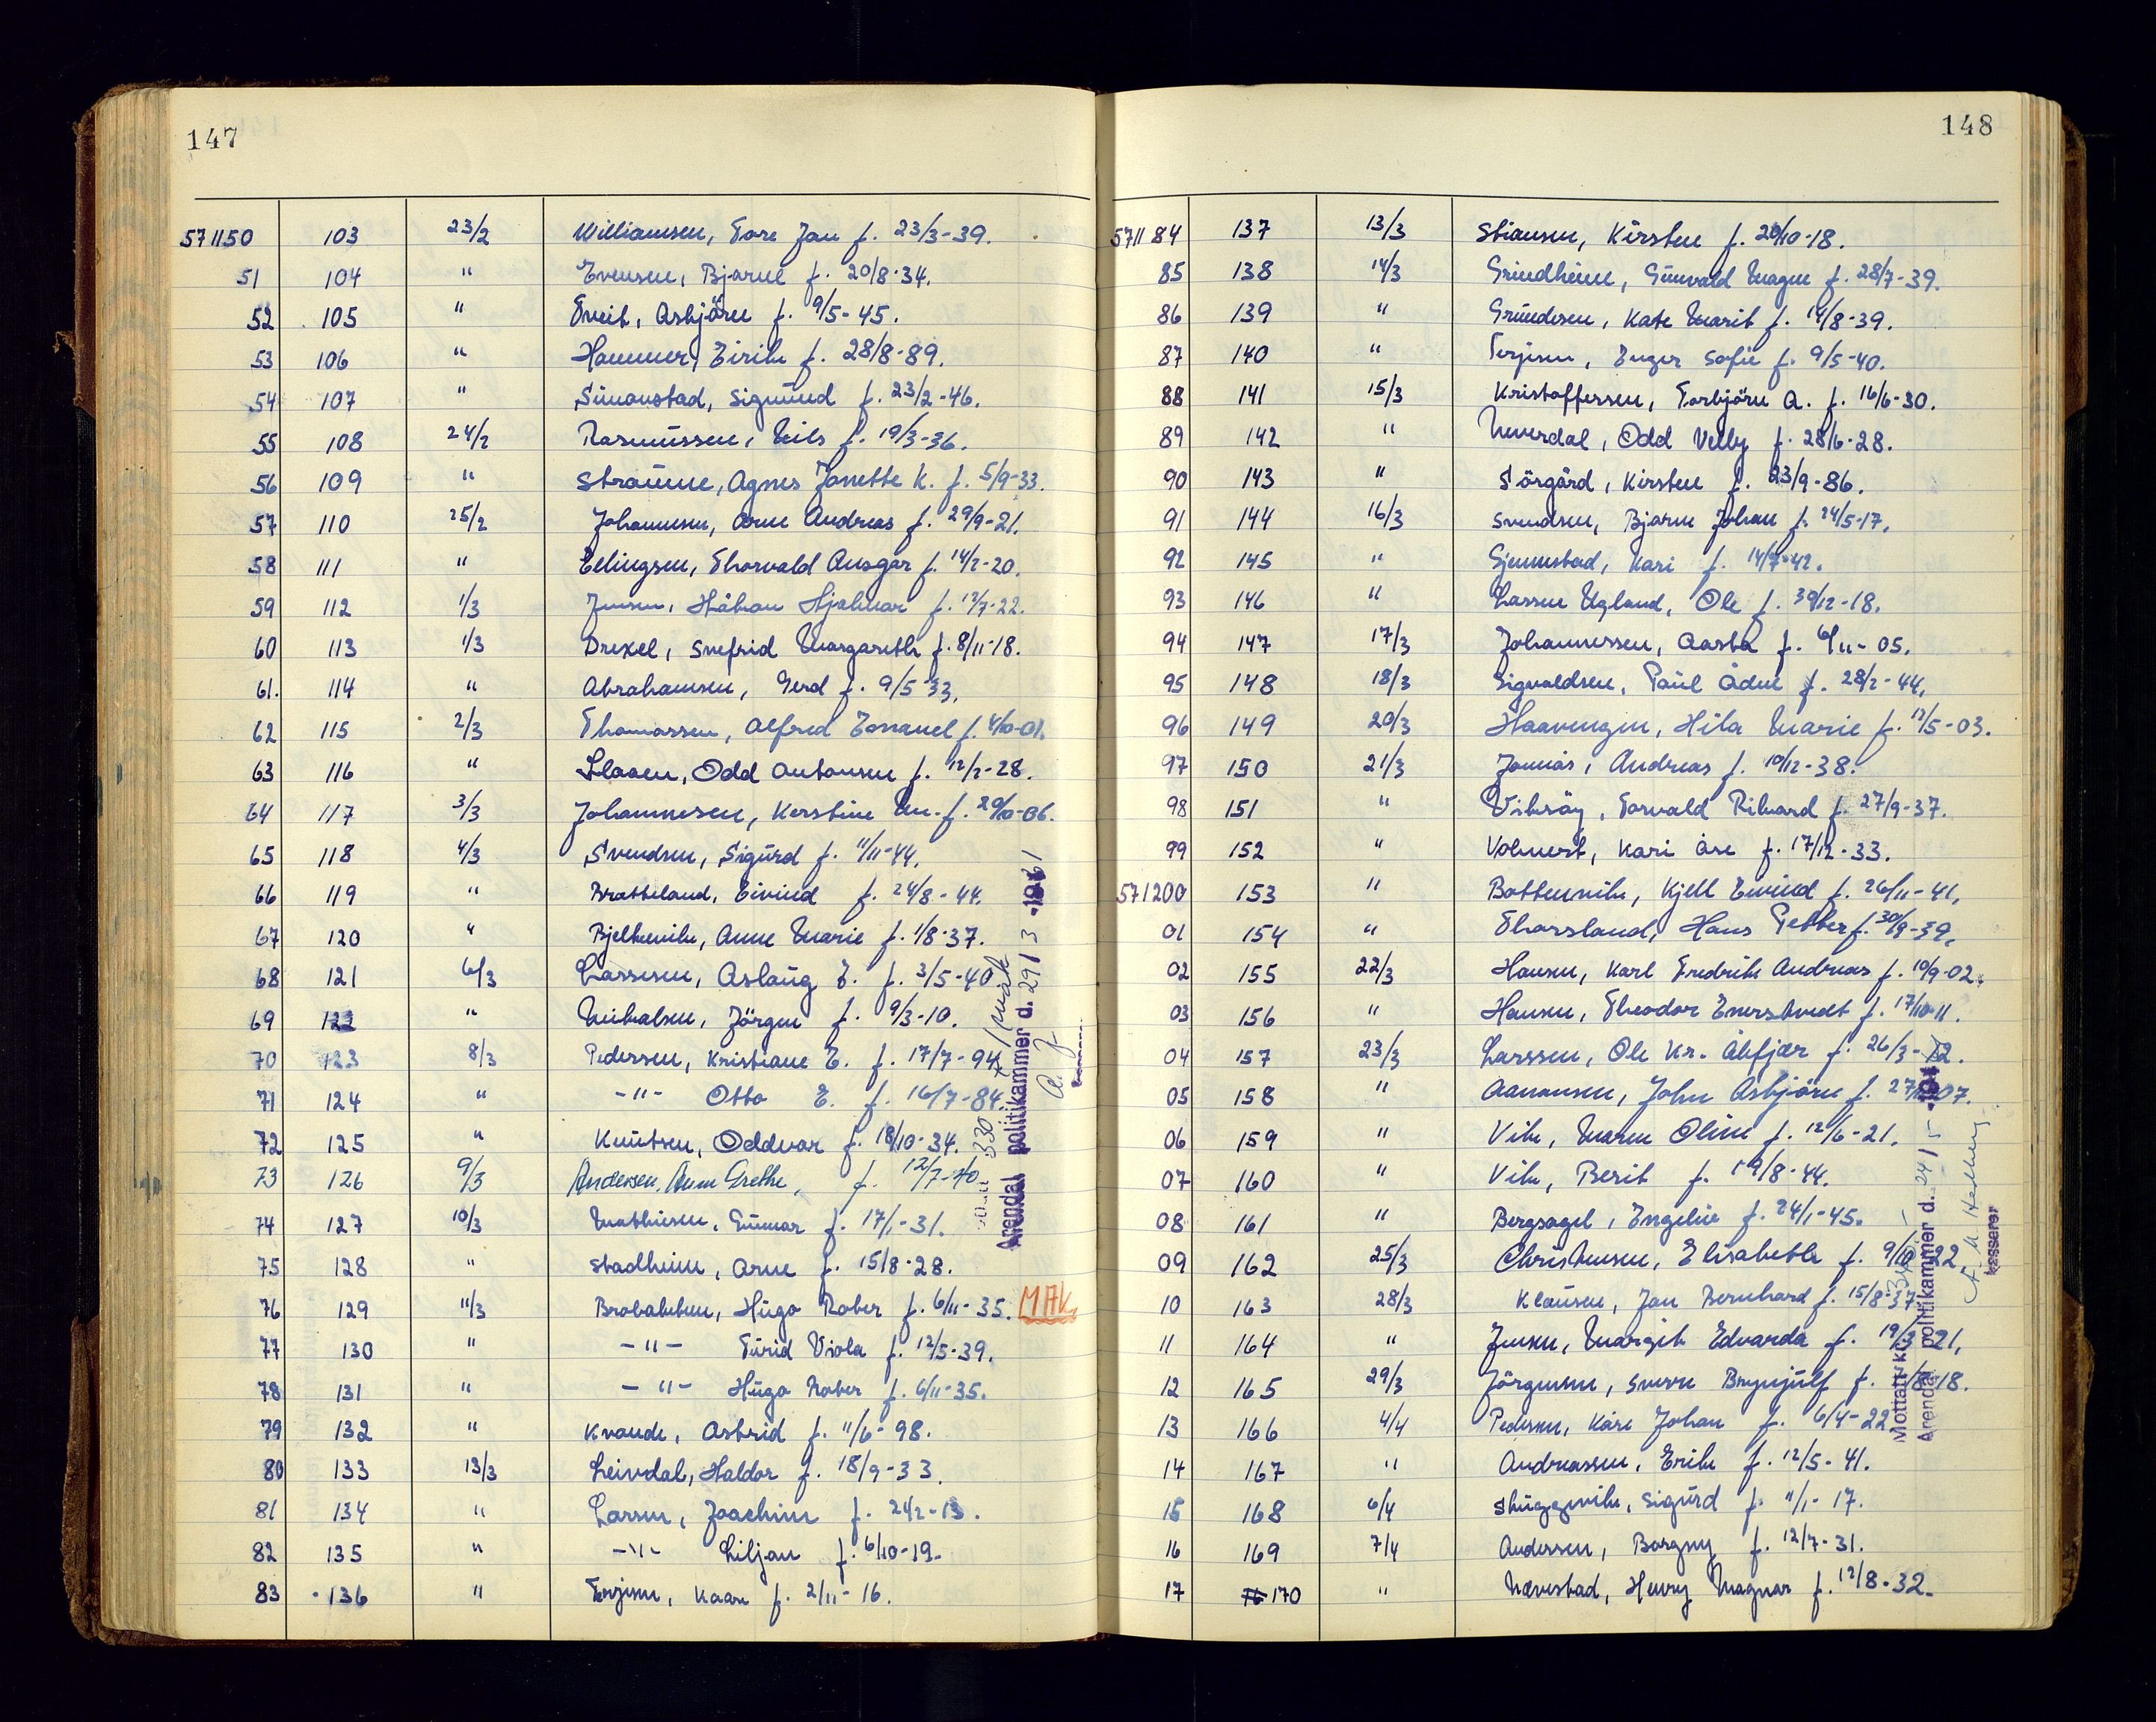 147
571150 103 23/2 Williamsen, Tore Jan f. 23/3-39.
51 104 " Evensen, Bjarne f. 20/8-34.
52 105 " Tveit, Asbjörn f. 9/5-45.
53 106 " Hammer, Eirik f. 28/8-89.
54 107 " Simonstad, Sigmund f. 23/2-46.
55 108 24/2 Rasmussen, Nils f. 19/3-36.
56 109 " Straume, Agnes Janette K. f. 5/9-33.
57 110 25/2 Johannsen, Arne Andreas f. 29/9-21.
58 111 " Ellingsen, Thorvald Ansgar f. 14/2-20.
59 112 1/3 Jensen, Håkon Hjalmar f. 13/7-22.
60 113 1/3 Drexel, Snefrid Margareth f. 8/11-18.
61. 114 " Abrahamsen, Gerd f. 9/5-33.
62 115 2/3 Thomassen, Alfred Emanuel f. 4/10-01.
63 116 " Slaaen, Odd Antonsen f. 12/2-28.
64 117 3/3 Johannesen, Kerstine M. f. 20/10-06.
65 118 4/3 Svendsen, Sigurd f. 11/11-44.
66 119 " Bratteland, Eivind f. 24/8-44.
67 120 " Bjelkevik, Anne Marie f. 1/8-37.
68 121 6/3 Lassesen, Aslaug E. f. 3/5-40
69 122 " Mikalsen, Jörgen f. 9/3-10.
70 123 8/3 Pedersen, Kristiane E. f. 17/7-94
71 124 " -"- Otto E. f. 16/7-84.
72 125 " Knutsen, Oddvar f. 18/10-34.
73 126 9/3 Andersen, Anne Grethe, f. 12/7-40
74 127 10/3 Mathisen, Gunnar f. 17/1-31.
75 128 " Stadheim, Arne f. 15/8-28.
76 129 11/3 Brobakken, Hugo Rober f. 6/11-35. MAK.
77 130 " -"- Turid Viola f. 12/5-39.
78 131 " -"- Hugo Rober f. 6/11-35.
79 132 " Knaude, Astrid f. 11/6-98.
80 133 13/3 Leivdal, Haldor f. 18/9-33.
81 134 " Larsen, Joachim f. 24/2-13.
82 135 " -"- Liljan f. 6/10-19.
83 136 " Terjesen, Kaare f. 2/11-16.
330
Arendal politikammer d. 29/3-1961
148
571184 137 13/3 Stiansen, Kirsten f. 20/10-18.
85 138 14/3 Grindheim, Gunvald Magne f. 28/7-39.
86 139 " Grundesen, Kate Marit f. 14/8-39.
87 140 " Terjesen, Inger Sofie f. 9/5-40.
88 141 15/3 Kristoffersen, Torbjörn A. f. 16/6-30.
89 142 " Neverdal, Odd Velly f. 28/6-28.
90 143 " Sörgård, Kirsten f. 23/9-86.
91 144 16/3 Svendsen, Bjarne Johan f. 24/5-17.
92 145 " Gjennestad, Kari f. 14/7-42.
93 146 " Lassen Ugland, Ole f. 30/12-18.
94 147 17/3 Johannessen, Aasta f. 6/11-05.
95 148 18/3 Sigvaldsen, Paul Ådne f. 28/2-44.
96 149 20/3 Haavengen, Hila Marie f. 12/5-03.
97 150 21/3 Jomås, Andreas f. 10/12-38.
98 151 " Viksöy, Torvald Rikard f. 27/9-37.
99 152 " Volmert, Kari Åse f. 17/12-33.
571200 153 " Bottenvik, Kjell Eivind f. 26/11-41.
01 154 " Thorsland, Hans Petter f. 30/9-39.
02 155 22/3 Hansen, Karl Fredrik Andreas f. 10/9-02.
03 156 " Hansen, Theodor Enerstvedt f. 17/10-11.
04 157 23/3 Larssen, Ole Kr. Åkfjær f. 26/3-12.
05 158 " Aanonsen, John Asbjörn f.
06 159 " Vik, Maren Oline f. 12/6-21.
07 160 " Vik, Berit f. 19/8-44.
08 161 " Bergsagel, Engelin f. 24/1-45.
09 162 25/3 Christensen, Elisabeth f. 9/10-22.
10 163 28/3 Klausen, Jan Bernhard f. 15/8-37
11 164 " Jensen, Margit Edvarda f. 19/3-21.
12 165 29/3 Jörgensen, Sverre Brynjulf f. /8-18.
13 166 4/4 Pedersen, Kåre Johan f. 6/4-22
14 167 " Andreassen, Erik f. 12/5-41.
15 168 6/4 Skuggevik, Sigurd f. 11/1-17.
16 169 7/4 Andersen, Borgny f. 12/7-31.
17 170 " Nævestad, Henry Magnar f. 12/8-32.
Mottatt kr.
Arendal politikammer d. 24/5
kasserer